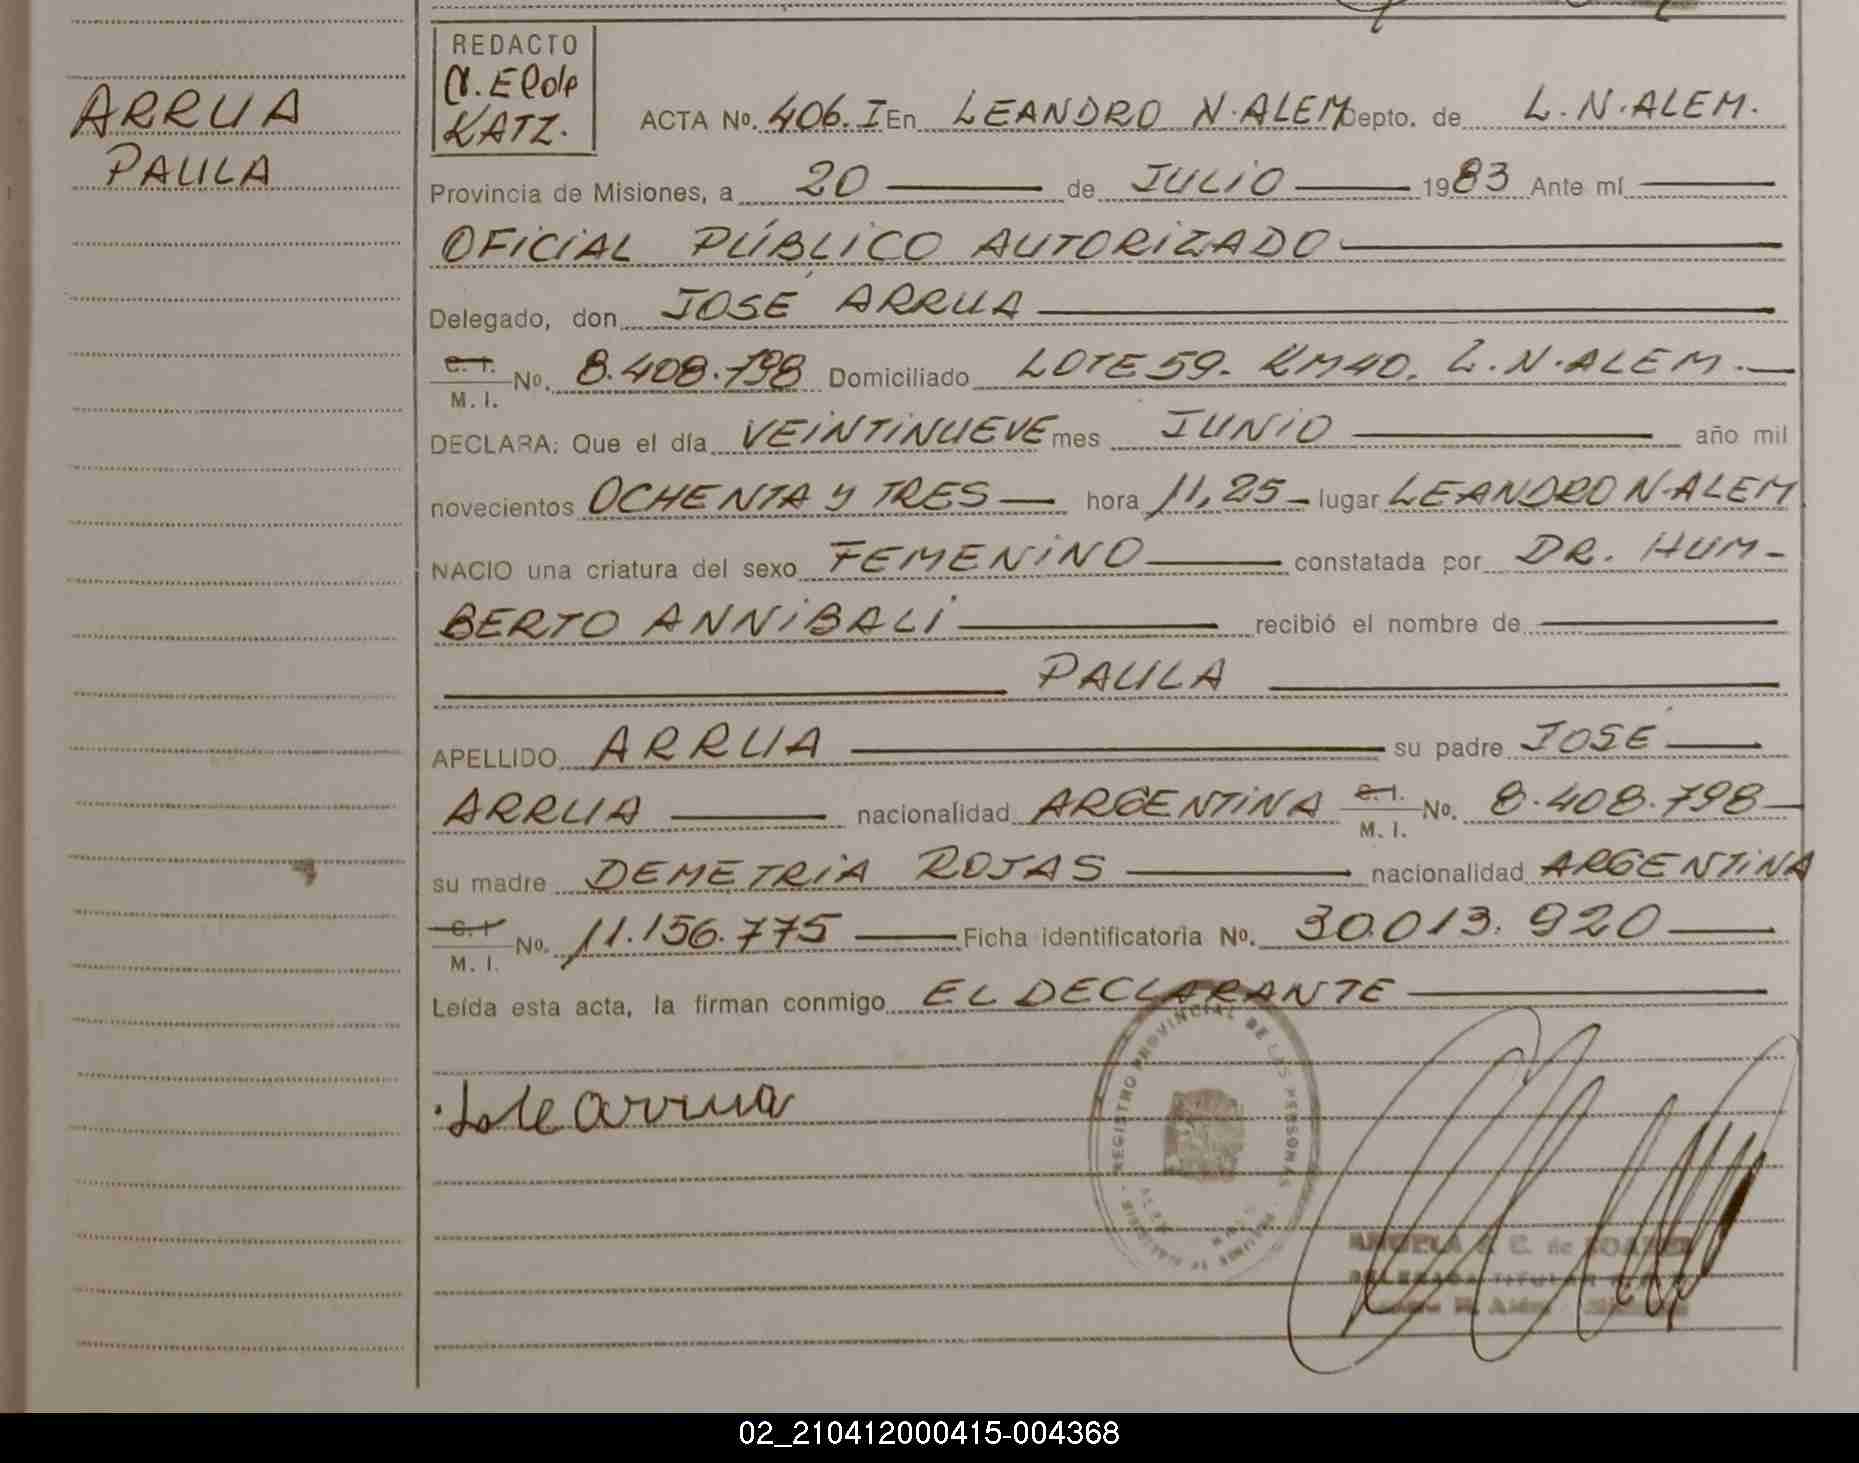 ARRUA
PAULA
REDACTO
KATZ.
ACTA No. 406.I En LEANDRO N. ALEM Depto. de L. N. ALEM.
Provincia de Misiones, a 20 de JULIO 1983 Ante mí
OFICIAL PÚBLICO AUTORIZADO
Delegado, don JOSE ARRUA
C. I. M. I. No. 8.408.798 Domiciliado LOTE 59. KM 40. L. N. ALEM.
DECLARA: Que el día VEINTINUEVE mes JUNIO año mil
novecientos OCHENTA Y TRES hora 11,25 lugar LEANDRO N. ALEM
NACIO una criatura del sexo FEMENINO constatada por DR. HUM-
BERTO ANNIBALI recibió el nombre de
PAULA
APELLIDO ARRUA su padre JOSÉ
ARRUA nacionalidad ARGENTINA C. I. M. I. No. 8.408.798
su madre DEMETRIA ROJAS nacionalidad ARGENTINA
C. I. M. I. No. 11.156.775 Ficha identificatoria No. 30.013.920
Leída esta acta, la firman conmigo EL DECLARANTE
REGISTRO PROVINCIAL DE LAS PERSONAS
arrua
ANGELA
DELEGADA TITULAR
02_210412000415-004368